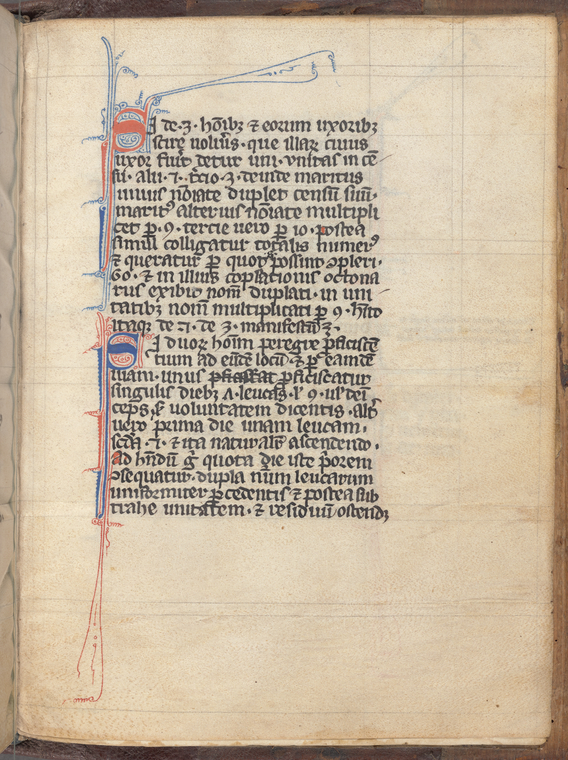 Si de .3. hoĩbꝫ ⁊ eorum uxoribꝫ
scire uolũis. que illaꝝ cuius
uxor fuit́ detur uni. vnitas in cẽ
su. alii .2. t̃cio .3. deinde maritus
unius nõiate duplet censũ suũ.
maritꝰ alterius nõiate multipli
cet ꝑ .9. tercie uero ꝑ 10. postea
simul colligatur totalis numerꝰ
⁊ queratur ꝑ quot possint ɔpleri.
60. ⁊ in illius cop̃lationis octona
rus exibit nom̃ duplati. in uni
tatibꝫ nom̃ multiplicati ꝑ 9. h̃ito
itaqꝫ de .2. de 3. manifestũ ẽ.
Si duoꝝ hoĩm peregre ꝓficiscẽ
tium ad eũdẽ locũ. ⁊ ꝑ eamdẽ
uiam. unus proficiscatur
singulis diebꝫ .8. leucas. ł 9. uł dei
ceps. s̃ uoluntatem dicentis. altꝰ
uero prima die unam leucam.
scđa .2. ⁊ ita naturalit̃ ascendendo.
ad hñdũ g̊ quota die iste p̃orem
ɔsequatur. dupla num̃ leucarum
uniformiter p̃cedentis ⁊ postea sub
trahe unitatem. ⁊ residuũ ostendꝫ